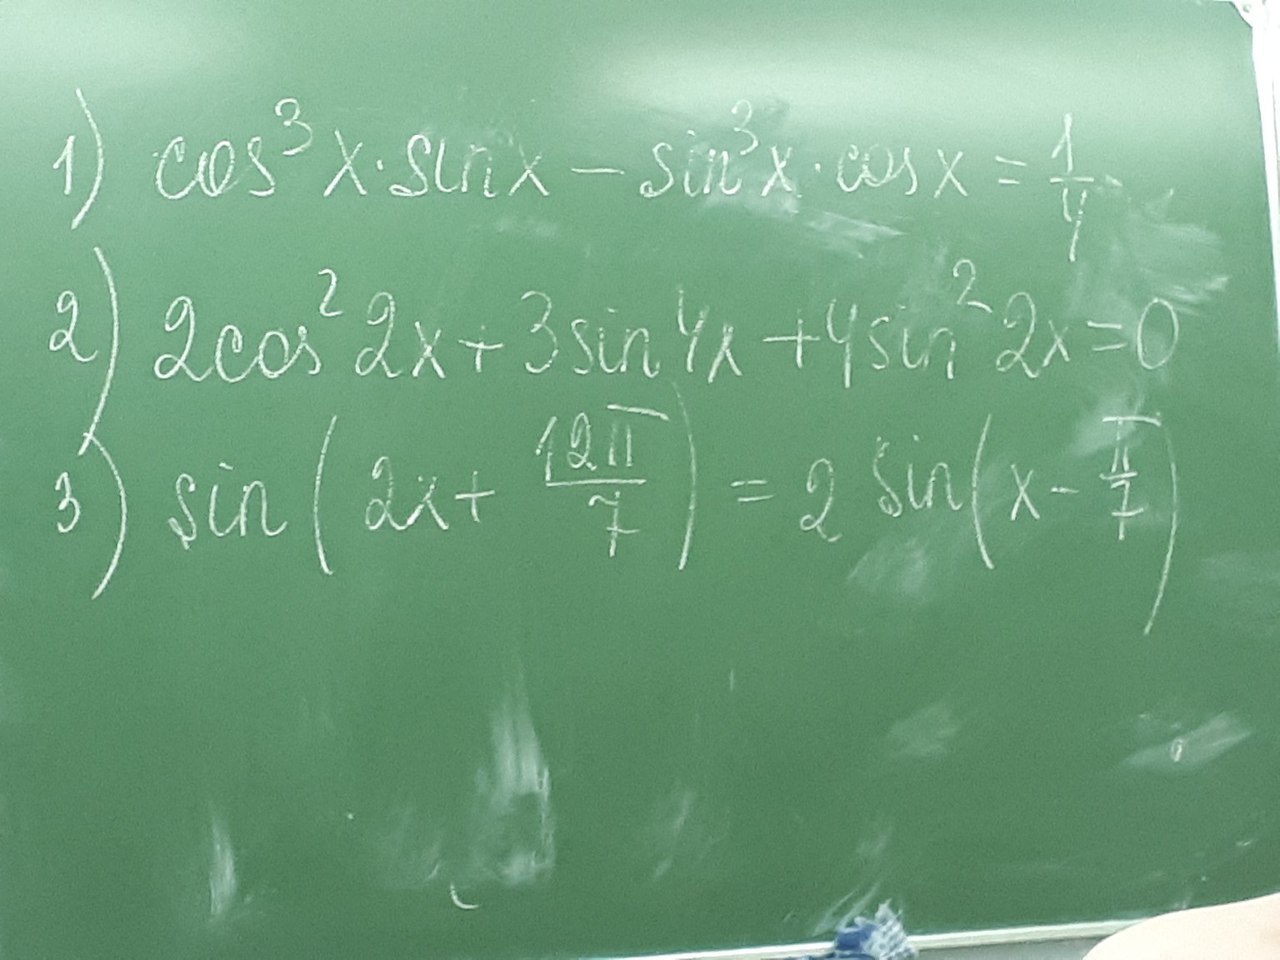 1) cos³x·sinx - sin³x·cosx = 1/4
2) 2cos²2x + 3sin4x + 4sin²2x = 0
3) sin(2x + 12π/7) = 2 sin(x - π/7)